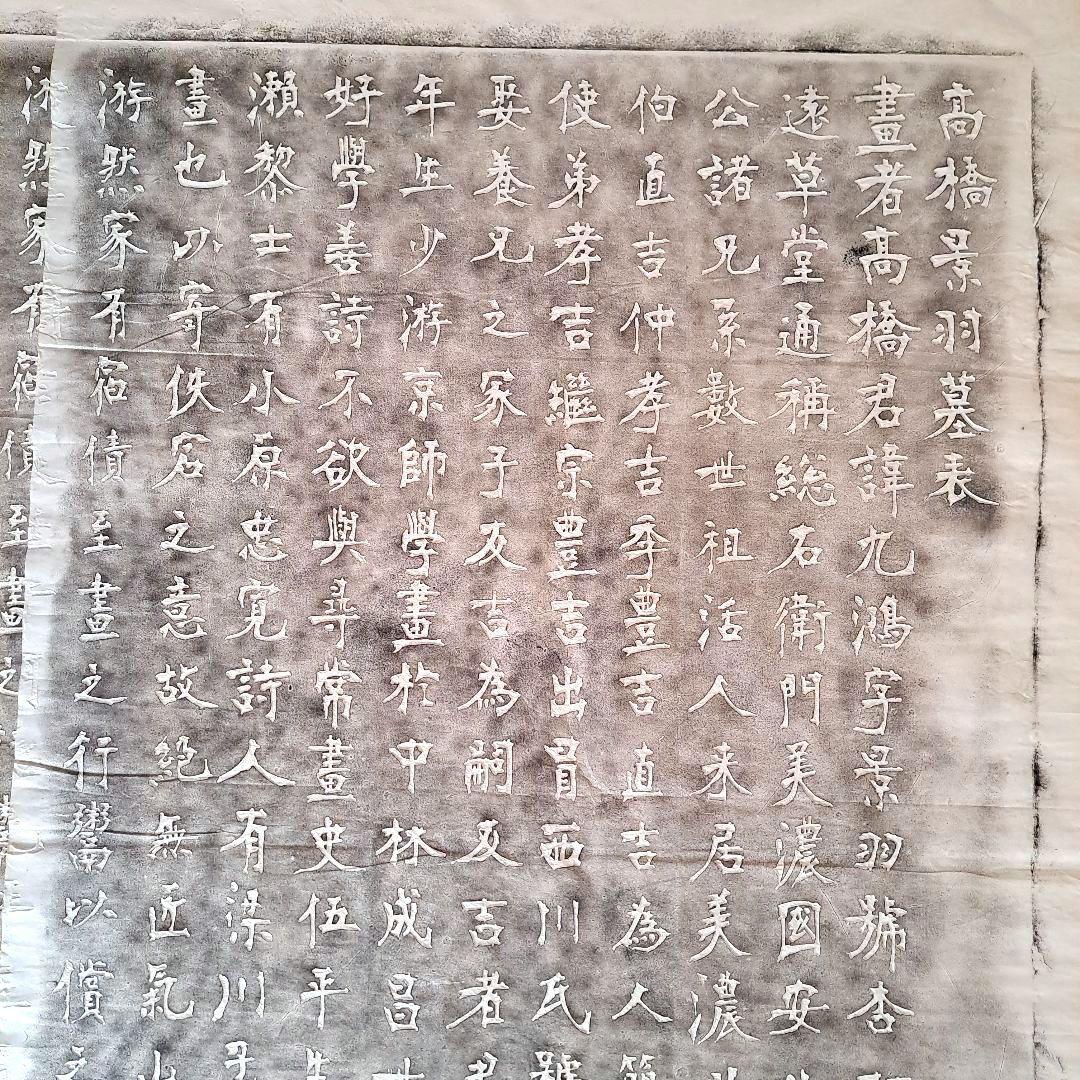 高橋景羽墓表
畫者高橋君諱九鴻字景羽號杏
遠草堂通稱総右衛門美濃國安
公諸兄系數世祖活人来居美濃
伯直吉仲孝吉季豊吉直吉為人
使弟孝吉繼宗豊吉出冒西川氏號
娶養兄之冢子友吉為嗣友吉者君
年生少游京師學畫於中林成昌
好學善詩不欲與尋常畫史伍平生
瀨黎士有小原忠寛詩人有梁川
畫也以寄佚宕之意故絕無匠氣
游然家有宿債至畫之行鬻以償之
游然家有宿債至畫之